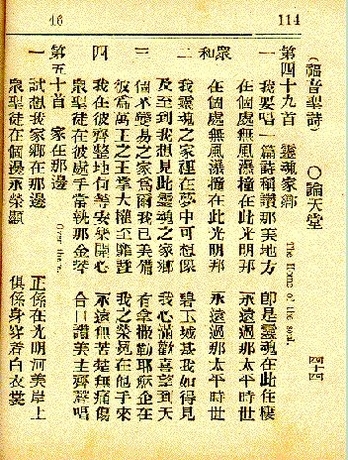 46
114
(福音聖詩) 〇論天堂
四十四
第四十九首 靈魂家鄉 The Home of the soul.
一 我要唱一篇詩稱讚那美地方 卽是靈魂在此住棲
在個處無風濕撞在此光明邦 永遠過那太平時世
衆和 在個處無風濕撞在此光明邦 永遠過那太平時世
二 我靈魂之家鄉在夢中可想像 碧玉城基我如得見
及至到我想見此靈魂之家鄉 我心滿歡喜望到天
三 個不變易之家爲爾我已美備 有拿撒勒耶穌企在
彼爲萬王之王掌大權至 我之榮冕在他手來
四 我在彼齊整地何等安樂開心 永遠無苦楚無痛傷
衆聖徒在彼處手常執那金琴 合口讚美主齊聲唱
第五十首 家在那邊 Over there.
一 試想我家鄉在那邊 正係在光明河美岸上
衆聖徒在個邊永榮顯 俱係身穿着白衣裳